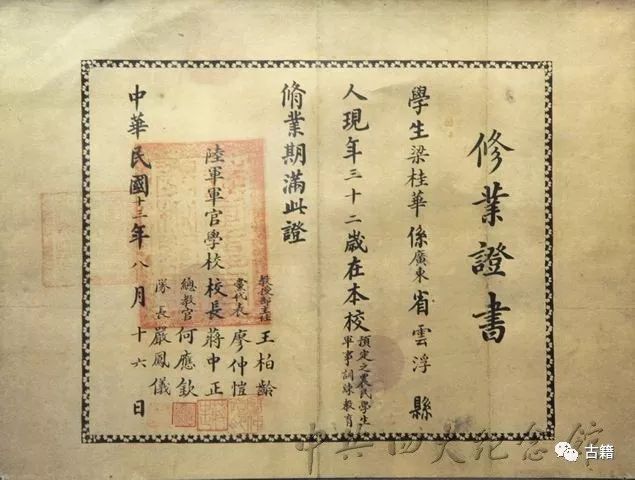 修業證書
學生梁桂華係廣東省雲浮縣
人現年三十二歲在本校預定之農民學生軍事訓練教育
脩業期滿此證
教授部主任王柏齡
黨代表廖仲愷
陸軍軍官學校校長蔣中正
總教官何應欽
隊長嚴鳳儀
中華民國十三年八月十六日
中共四大紀念館
古籍